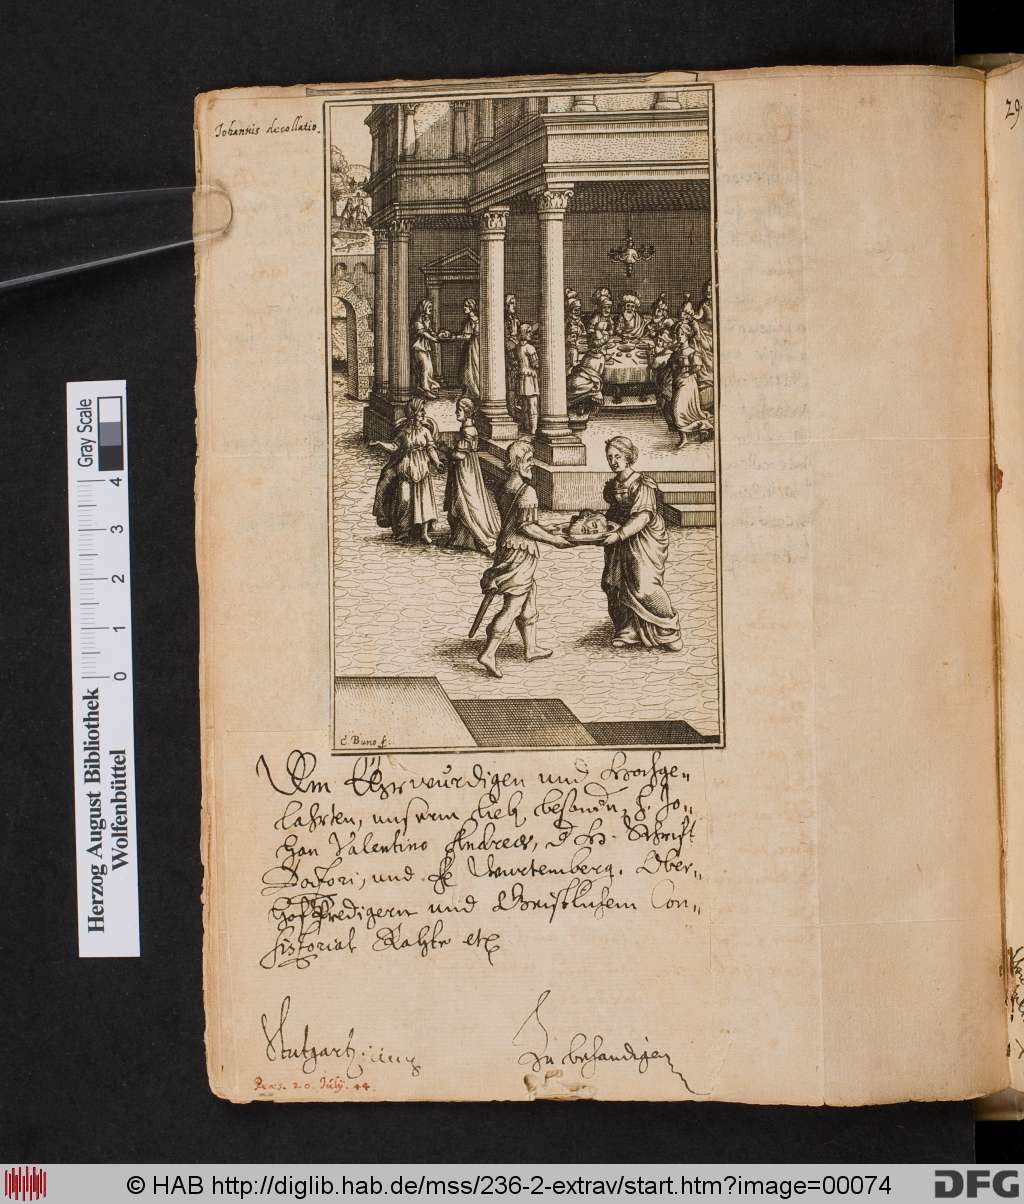 Johannis decollatio.
29
C. Buno f.
Dem Ehrwürdigen und Hochge-
lahrten, unserm lieb besonden H. Jo-
han Valentino Andreae, d H. Schrifft
Doctori, und F. Wurtemberg. Ober-
hoffpredigern und Geistlichem Con-
sistorial Rahte etc
Stutgart
Zu behandigen
Præs. 20. Julÿ. 44.
Gray Scale
4
3
2
1
0
Herzog August Bibliothek
Wolfenbüttel
© HAB http://diglib.hab.de/mss/236-2-extrav/start.htm?image=00074
DFG